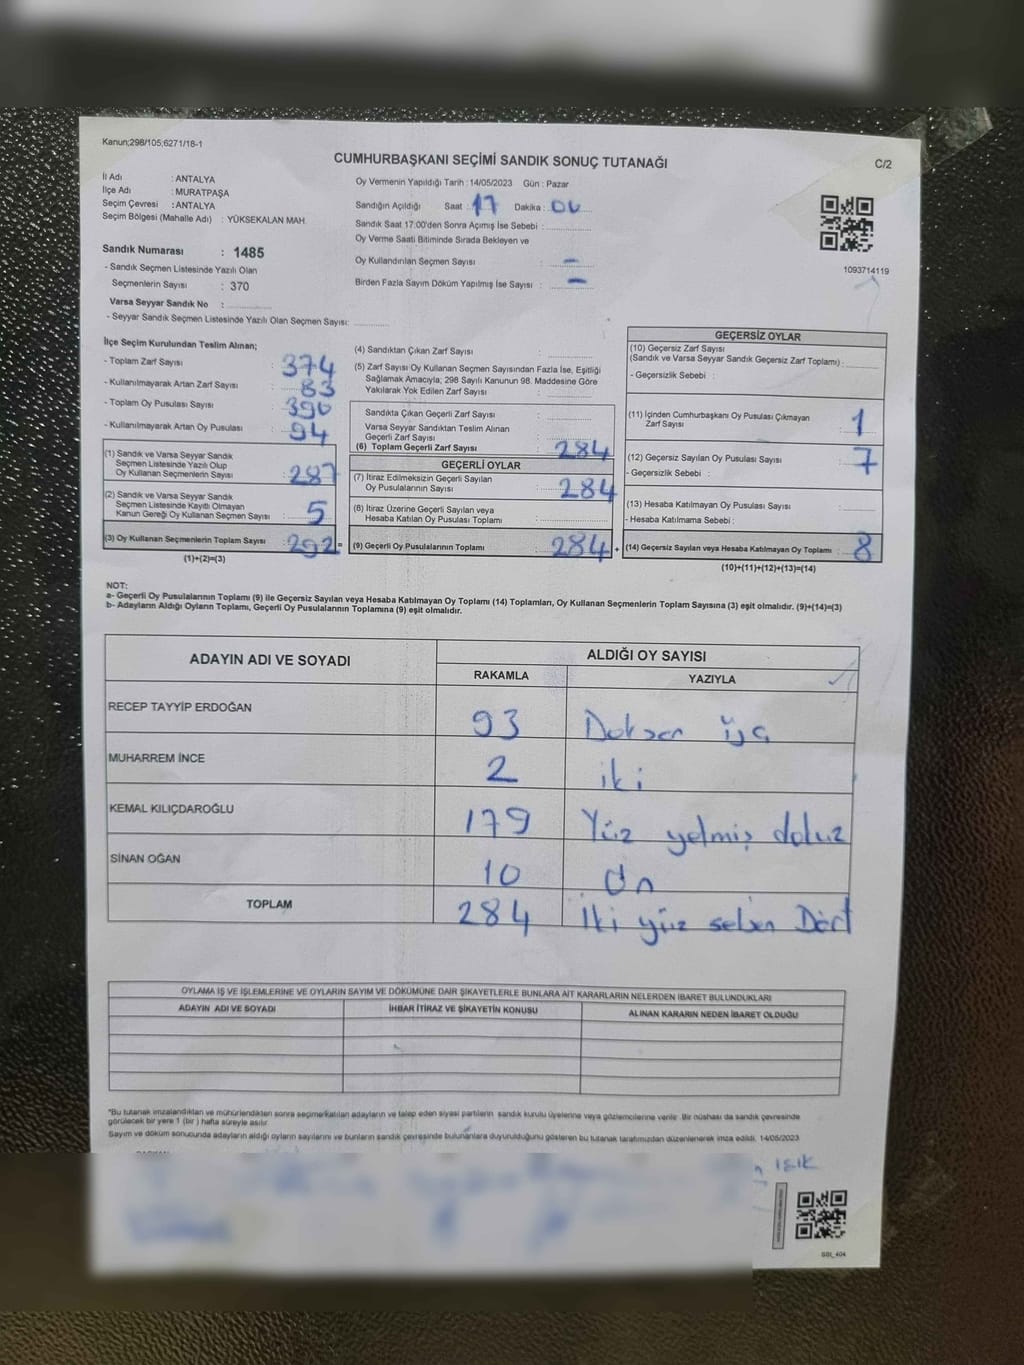 Kanun;298/105;6271/18-1
CUMHURBAŞKANI SEÇİMİ SANDIK SONUÇ TUTANAĞI
C/2
İl Adı : ANTALYA
İlçe Adı : MURATPAŞA
Seçim Çevresi : ANTALYA
Seçim Bölgesi (Mahalle Adı) : YÜKSEKALAN MAH
Sandık Numarası : 1485
- Sandık Seçmen Listesinde Yazılı Olan
Seçmenlerin Sayısı : 370
Varsa Seyyar Sandık No :
- Seyyar Sandık Seçmen Listesinde Yazılı Olan Seçmen Sayısı:
Oy Vermenin Yapıldığı Tarih : 14/05/2023 Gün : Pazar
Sandığın Açıldığı Saat : 17 Dakika :
Sandık Saat 17:00'den Sonra Açımış İse Sebebi :
Oy Verme Saati Bitiminde Sırada Bekleyen ve
Oy Kullandırılan Seçmen Sayısı : -
Birden Fazla Sayım Döküm Yapılmış İse Sayısı : -
1093714119
İlçe Seçim Kurulundan Teslim Alınan;
- Toplam Zarf Sayısı : 374
- Kullanılmayarak Artan Zarf Sayısı : 83
- Toplam Oy Pusulası Sayısı : 390
- Kullanılmayarak Artan Oy Pusulası : 94
(1) Sandık ve Varsa Seyyar Sandık
Seçmen Listesinde Yazılı Olup
Oy Kullanan Seçmenlerin Sayısı : 287
(2) Sandık ve Varsa Seyyar Sandık
Seçmen Listesinde Kayıtlı Olmayan
Kanun Gereği Oy Kullanan Seçmen Sayısı : 5
(3) Oy Kullanan Seçmenlerin Toplam Sayısı : 292 =
(1)+(2)=(3)
(4) Sandıktan Çıkan Zarf Sayısı :
(5) Zarf Sayısı Oy Kullanan Seçmen Sayısından Fazla İse, Eşitliği
Sağlamak Amacıyla; 298 Sayılı Kanunun 98. Maddesine Göre
Yakılarak Yok Edilen Zarf Sayısı :
Sandıkta Çıkan Geçerli Zarf Sayısı :
Varsa Seyyar Sandıktan Teslim Alınan
Geçerli Zarf Sayısı :
(6) Toplam Geçerli Zarf Sayısı : 284
GEÇERLİ OYLAR
(7) İtiraz Edilmeksizin Geçerli Sayılan
Oy Pusulalarının Sayısı : 284
(8) İtiraz Üzerine Geçerli Sayılan veya
Hesaba Katılan Oy Pusulası Toplamı :
(9) Geçerli Oy Pusulalarının Toplamı 284 +
GEÇERSİZ OYLAR
(10) Geçersiz Zarf Sayısı
(Sandık ve Varsa Seyyar Sandık Geçersiz Zarf Toplamı) :
- Geçersizlik Sebebi :
(11) İçinden Cumhurbaşkanı Oy Pusulası Çıkmayan
Zarf Sayısı : 1
(12) Geçersiz Sayılan Oy Pusulası Sayısı : 7
- Geçersizlik Sebebi :
(13) Hesaba Katılmayan Oy Pusulası Sayısı :
- Hesaba Katılmama Sebebi :
(14) Geçersiz Sayılan veya Hesaba Katılmayan Oy Toplamı : 8
(10)+(11)+(12)+(13)=(14)
NOT:
a- Geçerli Oy Pusulalarının Toplamı (9) ile Geçersiz Sayılan veya Hesaba Katılmayan Oy Toplamı (14) Toplamları, Oy Kullanan Seçmenlerin Toplam Sayısına (3) eşit olmalıdır. (9)+(14)=(3)
b- Adayların Aldığı Oyların Toplamı, Geçerli Oy Pusulalarının Toplamına (9) eşit olmalıdır.
ADAYIN ADI VE SOYADI
ALDIĞI OY SAYISI
RAKAMLA YAZIYLA
RECEP TAYYİP ERDOĞAN 93 Doksan üç
MUHARREM İNCE 2 iki
KEMAL KILIÇDAROĞLU 179 Yüz yetmiş dokuz
SİNAN OĞAN 10 On
TOPLAM 284 İki yüz seksen Dört
OYLAMA İŞ VE İŞLEMLERİNE VE OYLARIN SAYIM VE DÖKÜMÜNE DAİR ŞİKAYETLERLE BUNLARA AİT KARARLARIN NELERDEN İBARET BULUNDUKLARI
ADAYIN ADI VE SOYADI İHBAR İTİRAZ VE ŞİKAYETİN KONUSU ALINAN KARARIN NEDEN İBARET OLDUĞU
*Bu tutanak imzalandıktan ve mühürlendikten sonra seçime katılan adayların ve talep eden siyasi partilerin sandık kurulu üyelerine veya gözlemcilerine verilir. Bir nüshası da sandık çevresinde
görülecek bir yere 1 (bir) hafta süreyle asılır.
Sayım ve döküm sonucunda adayların aldığı oyların sayılarını ve bunların sandık çevresinde bulunanlara duyurulduğunu gösteren bu tutanak tarafımızdan düzenlenerek imza edildi. 14/05/2023
IŞIK